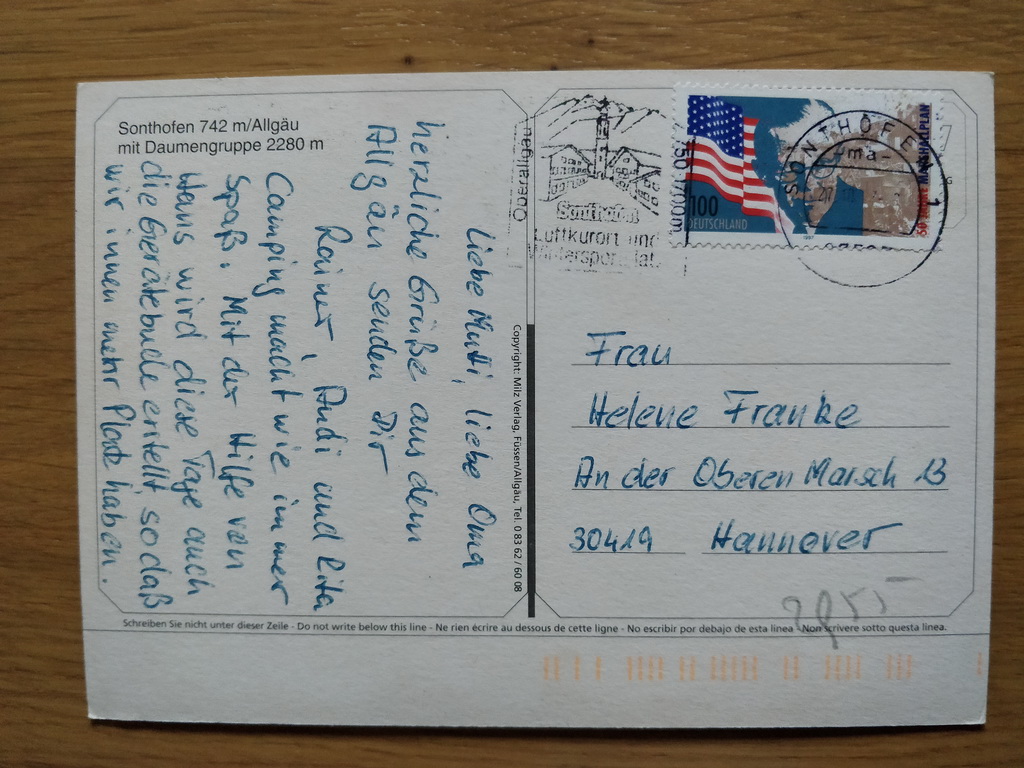 Sonthofen 742 m/Allgäu
mit Daumengruppe 2280 m
Liebe Mutti, liebe Oma
herzliche Grüße aus dem
Allgäu senden Dir
Rainer, Andi und Rita
Camping macht wie immer
Spaß. Mit der Hilfe von
Hans wird diese Tage auch
die Gerätebude erstellt, sodaß
wir innen mehr Platz haben.
Copyright: Milz Verlag, Füssen/Allgäu, Tel. 0 83 62 / 60 08
Oberallgäu
750-1700m
Sonthofen
Luftkurort und
Wintersportplatz
100
DEUTSCHLAND
50 JAHRE MARSHALLPLAN
SONTHOFEN
ma
1
Frau
Helene Franke
An der Oberen Marsch 13
30419 Hannover
Schreiben Sie nicht unter dieser Zeile - Do not write below this line - Ne rien écrire au dessous de cette ligne - No escribir por debajo de esta linea - Non scrivere sotto questa linea.